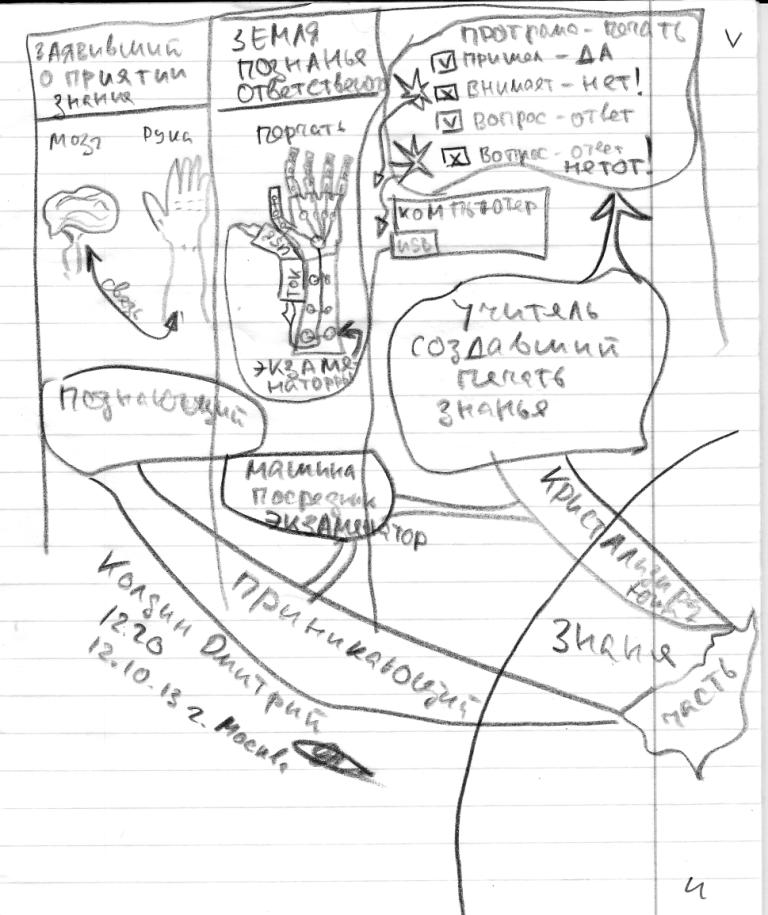 ЗАЯВИВШИЙ
О ПРИЯТИИ
ЗНАНИЯ
МОЗГ
РУКА
связь
ЗЕМЛЯ
ПОЗНАНЬЯ
ОТВЕТСТВЕНОЙ
ПЕРЧАТЬ
USB
ТОК
ЭКЗАМЕ-
НАТОРРЫ
ПРОГРАМА - ПЕЧАТЬ
ПРИШЁЛ - ДА
ВНИМАЕТ - НЕТ!
ВОПРОС - ОТВЕТ
ВОПРОС - ОТВЕТ
НЕ ТОТ!
КОМПЬЮТЕР
USB
УЧИТЕЛЬ
СОЗДАВШИЙ
ПЕЧАТЬ
ЗНАНЬЯ
ПОЗНАЮЩИЙ
МАШИНА
ПОСРЕДНИК
ЭКЗАМЕНАТОР
ПРИНИКАЮЩИЙ
ЗНАНИЯ
ЧАСТЬ
Колдин Дмитрий
12.20
12.10.13 г. Москва